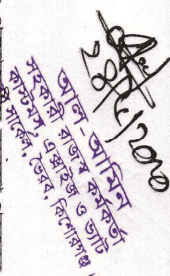 ২৪/৮/২০২০
আল-আমিন
সহকারী রাজস্ব কর্মকর্তা
কাস্টমস, এক্সাইজ ও ভ্যাট
সার্কেল, ভৈরব, কিশোরগঞ্জ